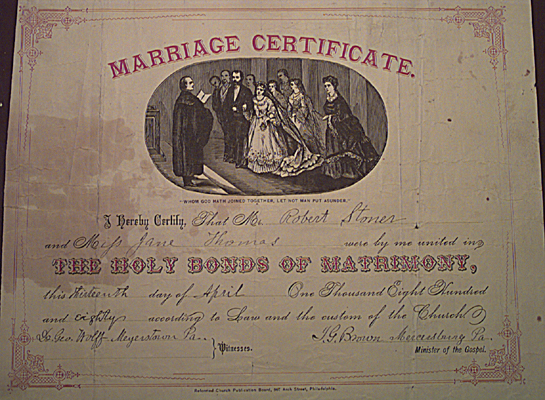 MARRIAGE CERTIFICATE.
"WHOM GOD HATH JOINED TOGETHER, LET NOT MAN PUT ASUNDER."
I Hereby Certify, That Mr. Robert Stoner
and Miss Jane Thomas were by me united in
THE HOLY BONDS OF MATRIMONY,
this thirteenth day of April One Thousand Eight Hundred
and eighty according to Law and the custom of the Church
Geo. Wolff Meyerstown Pa. } Witnesses.
I. G. Brown Mercersburg Pa.
Minister of the Gospel.
Reformed Church Publication Board, 907 Arch Street, Philadelphia.